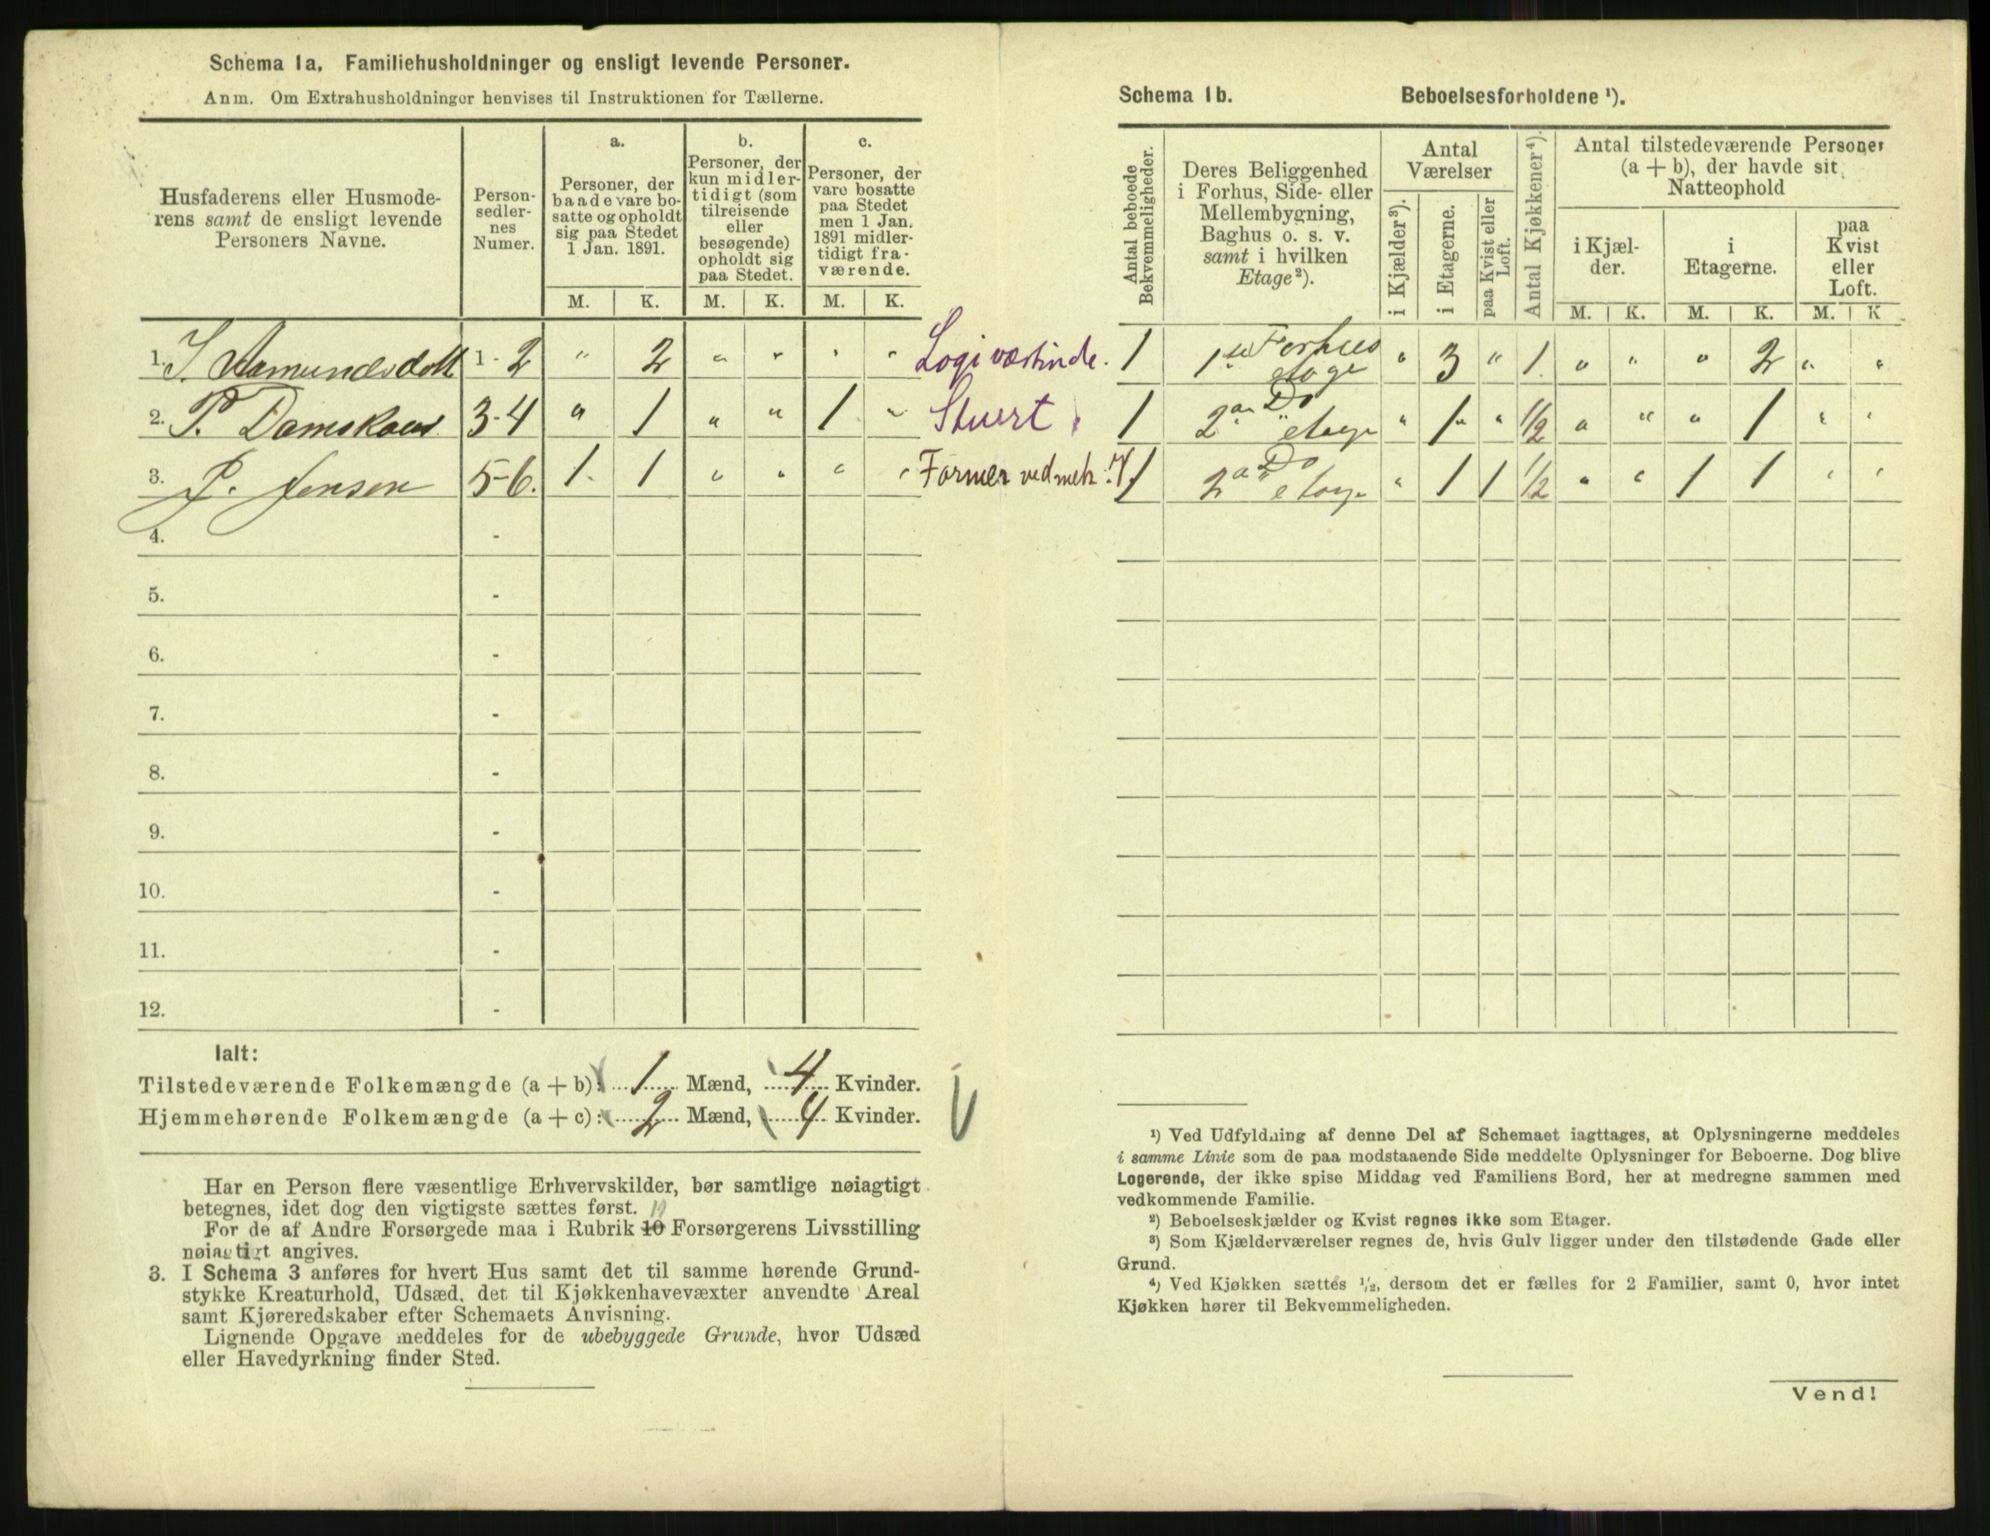 Schema 1a. Familiehusholdninger og ensligt levende Personer.
Anm. Om Extrahusholdninger henvises til Instruktionen for Tællerne.
Husfaderens eller Husmode-
rens samt de ensligt levende
Personers Navne.
Person-
sedler-
nes
Numer.
a.
Personer, der
baade vare bo-
satte og opholdt
sig paa Stedet
1 Jan. 1891.
b.
Personer, der
kun midler-
tidigt (som
tilreisende
eller
besøgende)
opholdt sig
paa Stedet.
c.
Personer, der
vare bosatte
paa Stedet
men 1 Jan.
1891 midler-
tidigt fra-
værende.
M. K. M. K. M. K.
1. I. Aamundsdatt 1-2 " 2 " " " " Logiværtinde.
2. P. Damskaus 3-4 " 1 " " 1 " Stuert
3. P. Jensen 5-6. 1 1 " " " " Former ved mek. V.
4. -
5. -
6. -
7. -
8. -
9. -
10. -
11. -
12. -
Ialt:
Tilstedeværende Folkemængde (a + b): 1 Mænd, 4 Kvinder.
Hjemmehørende Folkemængde (a + c): 2 Mænd, 4 Kvinder.
Har en Person flere væsentlige Erhvervskilder, bør samtlige nøiagtigt
betegnes, idet dog den vigtigste sættes først.
For de af Andre Forsørgede maa i Rubrik 10 Forsørgerens Livsstilling
nøiagtigt angives.
3. I Schema 3 anføres for hvert Hus samt det til samme hørende Grund-
stykke Kreaturhold, Udsæd, det til Kjøkkenhavevæxter anvendte Areal
samt Kjøreredskaber efter Schemaets Anvisning.
Lignende Opgave meddeles for de ubebyggede Grunde, hvor Udsæd
eller Havedyrkning finder Sted.
Schema 1b. Beboelsesforholdene ¹).
Antal beboede
Bekvemmeligheder.
Deres Beliggenhed
i Forhus, Side- eller
Mellembygning,
Baghus o. s. v.
samt i hvilken
Etage²).
Antal
Værelser
i Kjælder³).
i Etagerne.
paa Kvist eller
Loft.
Antal Kjøkkener⁴).
Antal tilstedeværende Personer
(a + b), der havde sit
Natteophold
i Kjæl-
der.
i
Etagerne.
paa
Kvist
eller
Loft.
M. K. M. K. M. K
1 1ste Forhus etage " 3 " 1. " " " 2 " "
1 2den Do etage " 1 " 1/2 " " " 1 " "
1 2den Do etage " 1 1 1/2 " " 1 1 " "
¹) Ved Udfyldning af denne Del af Schemaet iagttages, at Oplysningerne meddeles
i samme Linie som de paa modstaaende Side meddelte Oplysninger for Beboerne. Dog blive
Logerende, der ikke spise Middag ved Familiens Bord, her at medregne sammen med
vedkommende Familie.
²) Beboelseskjælder og Kvist regnes ikke som Etager.
³) Som Kjælderværelser regnes de, hvis Gulv ligger under den tilstødende Gade eller
Grund.
⁴) Ved Kjøkken sættes 1/2, dersom det er fælles for 2 Familier, samt 0, hvor intet
Kjøkken hører til Bekvemmeligheden.
Vend!